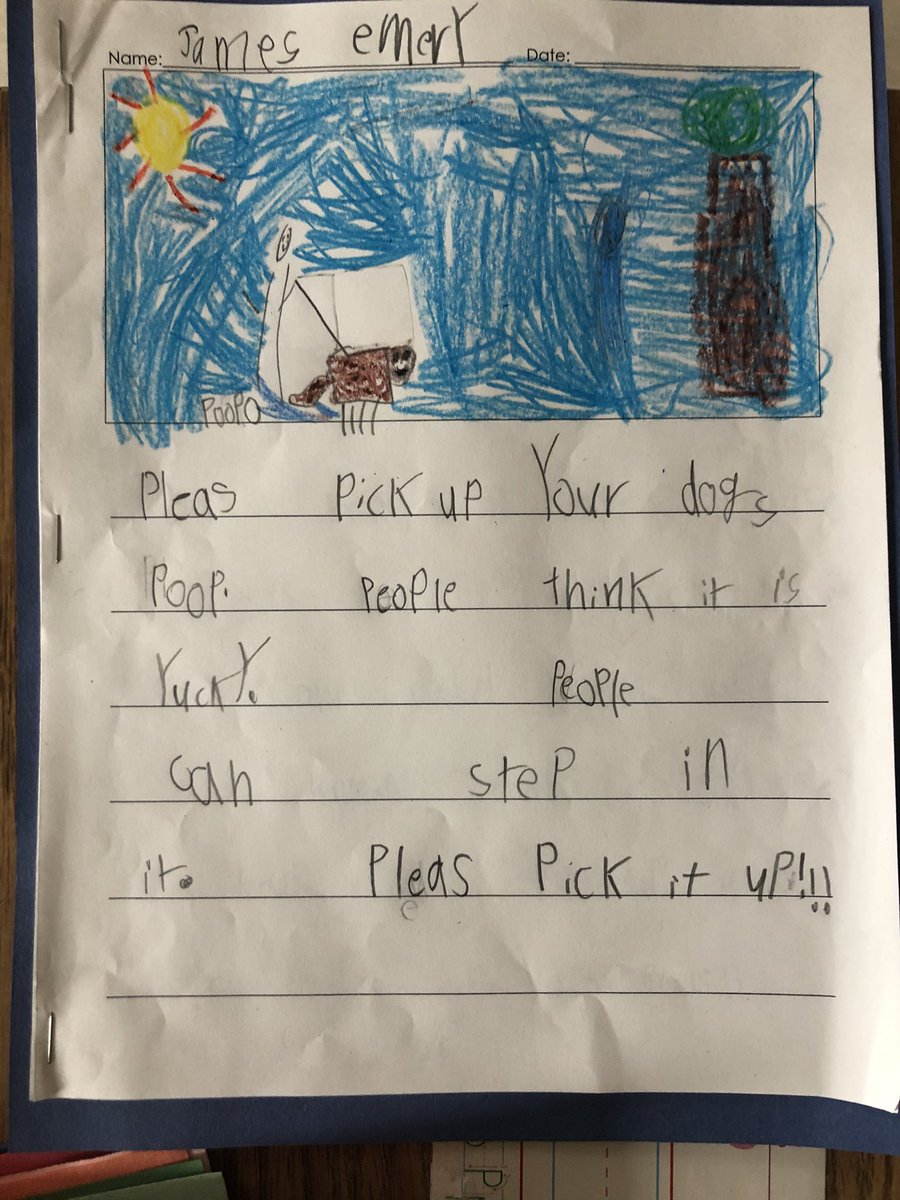 Name: James emery Date:
PooPO
Pleas Pick up Your dogs
Poop. People think it is
Yucky. People
can step in
it. Pleas Pick it uP!!!
e